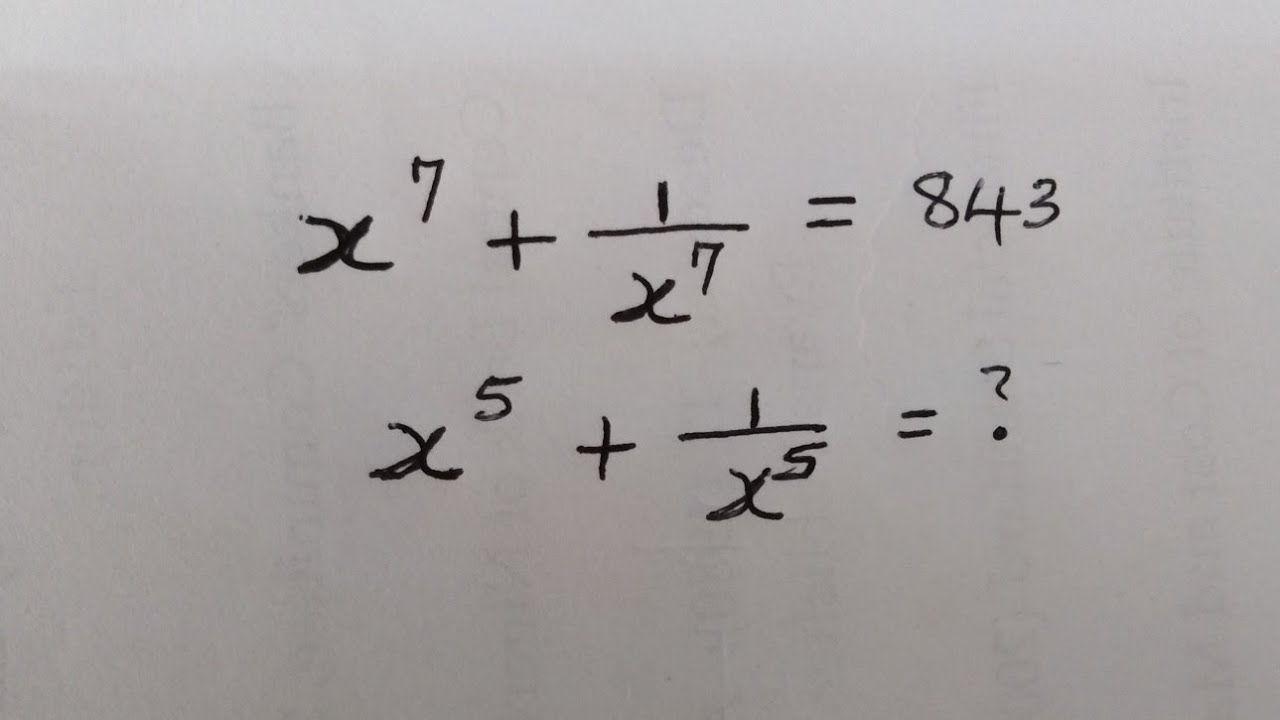 x^7 + 1/x^7 = 843
x^5 + 1/x^5 = ?